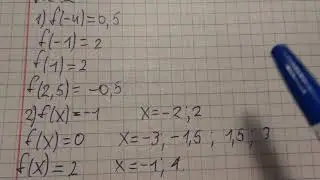 1) f(-4)=0,5
f(-1)=2
f(1)=2
f(2,5)=-0,5
2) f(x)=-1 x=-2; 2
f(x)=0 x=-3; -1,5; 1,5; 3
f(x)=2 x=-1; 1.